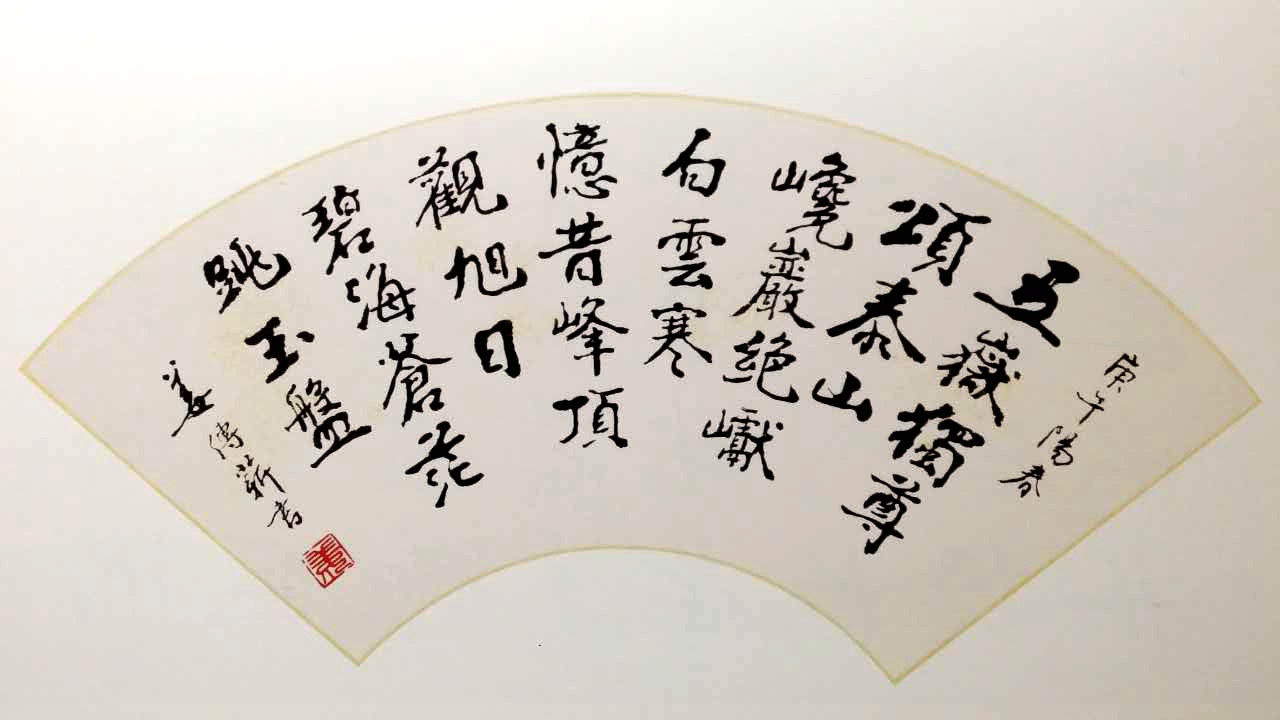 庚午陽春
五嶽獨尊
頌泰山
巉巖絕巘
白雲寒
憶昔峰頂
觀旭日
碧海蒼茫
跳玉盤
姜書